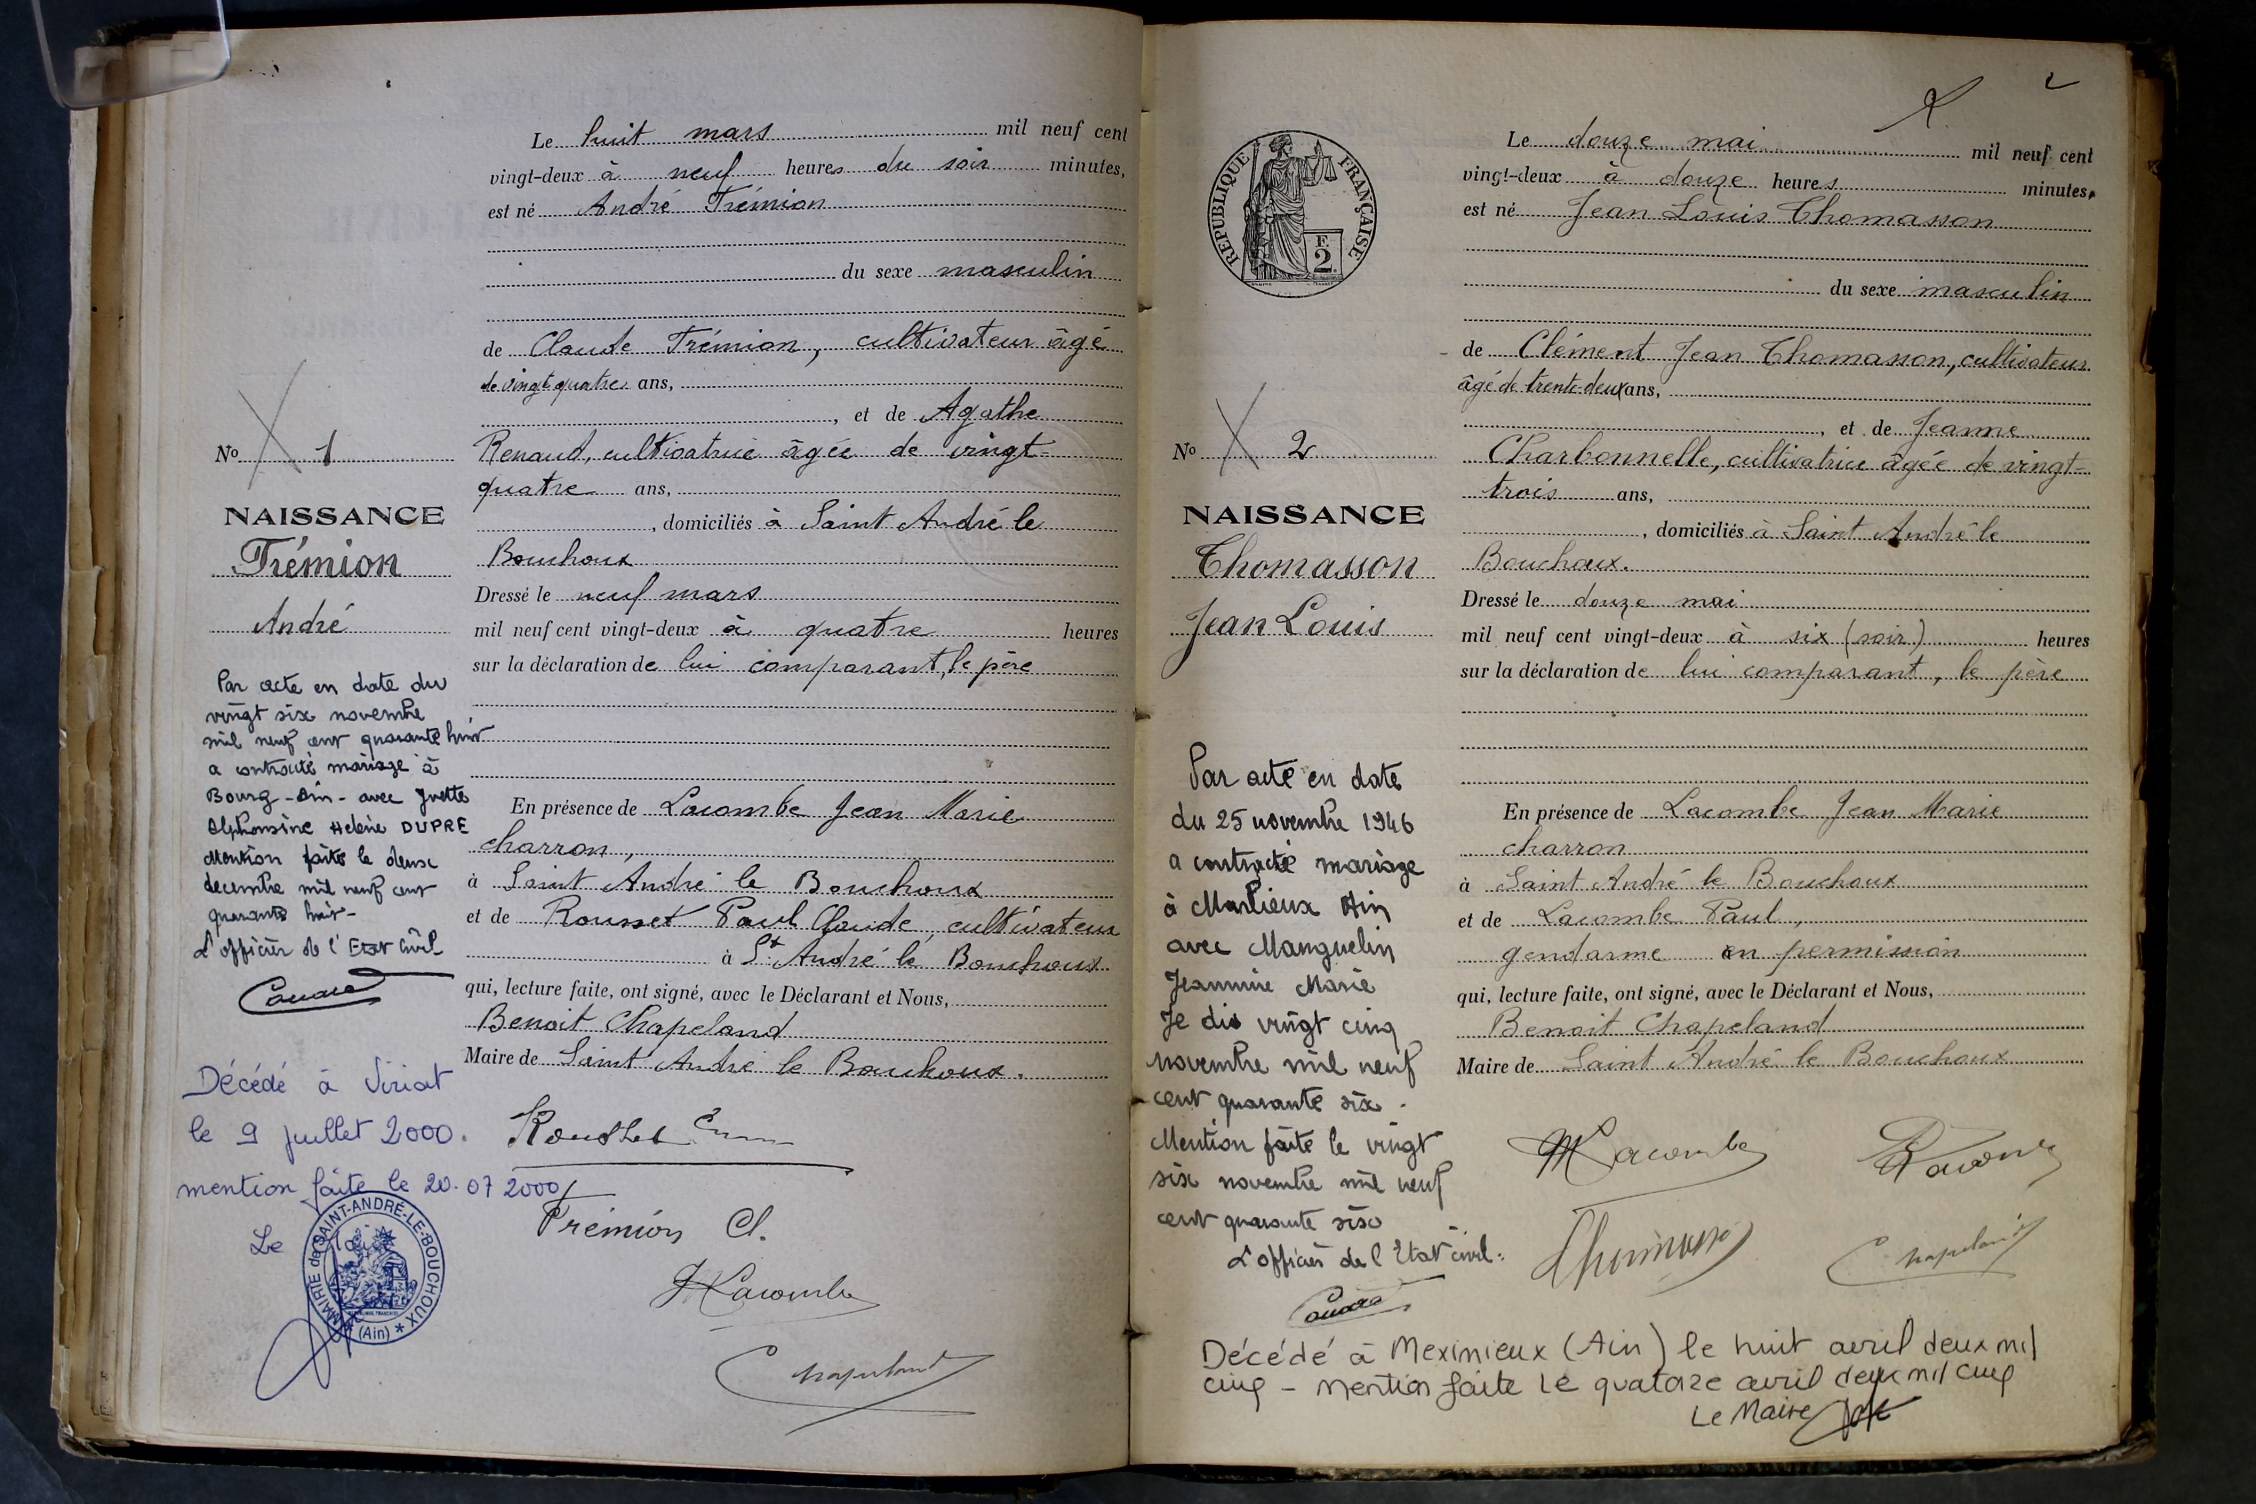 Le huit mars mil neuf cent
vingt-deux à neuf heures du soir minutes,
est né André Trémion
du sexe masculin
de Claude Trémion, cultivateur âgé
de vingt quatre ans,
, et de Agathe
Renaud, cultivatrice âgée de vingt-
quatre ans,
, domiciliés à Saint André le
Bouchoux
Dressé le neuf mars
mil neuf cent vingt-deux à quatre heures
sur la déclaration de lui comparant, le père
En présence de Lacombe Jean Marie
charron,
à Saint André le Bouchoux
et de Rousset Paul Claude, cultivateur
à St André le Bouchoux
qui, lecture faite, ont signé, avec le Déclarant et Nous,
Benoit Chapeland
Maire de Saint André le Bouchoux.
No 1
NAISSANCE
Trémion
André
Par acte en date du
vingt six novembre
mil neuf cent quarante huit
a contracté mariage à
Bourg - Ain - avec Yvette
Alphonsine Hélène DUPRE
Mention faite le deux
decembre mil neuf cent
quarante huit -
L'officier de l'Etat Civil
Décédé à Viriat
le 9 juillet 2000.
mention faite le 20.07 2000
Le
MAIRIE de SAINT-ANDRÉ-LE-BOUCHOUX
* (Ain) *
Rousset
Trémion Cl.
Lacombe
Chapeland
2
RÉPUBLIQUE FRANÇAISE
F.
2
Le douze mai mil neuf cent
vingt-deux à douze heures minutes
est né Jean Louis Thomasson
du sexe masculin
de Clément Jean Thomasson, cultivateur
âgé de trente-deux ans,
, et de Jeanne
Charbonnelle, cultivatrice âgée de vingt-
trois ans,
, domiciliés à Saint André le
Bouchoux.
Dressé le douze mai
mil neuf cent vingt-deux à six (soir) heures
sur la déclaration de lui comparant, le père
En présence de Lacombe Jean Marie
charron
à Saint André le Bouchoux
et de Lacombe Paul,
gendarme en permission
qui, lecture faite, ont signé, avec le Déclarant et Nous,
Benoit Chapeland
Maire de Saint André le Bouchoux
No 2
NAISSANCE
Thomasson
Jean Louis
Par acte en date
du 25 novembre 1946
a contracté mariage
à Marlieux Ain
avec Manguelin
Jeannine Marie
Je dis vingt cinq
novembre mil neuf
cent quarante six -
Mention faite le vingt
six novembre mil neuf
cent quarante six
L'officier de l'Etat civil.
Lacombe
Lacombe
Thomasson
Chapeland
Décédé à Meximieux (Ain) le huit avril deux mil
cinq - mention faite le quatorze avril deux mil cinq
Le Maire